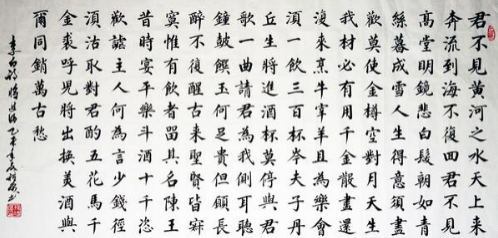 君不見黃河之水天上來
奔流到海不復回君不見
高堂明鏡悲白髮朝如青
絲暮成雪人生得意須盡
歡莫使金樽空對月天生
我材必有用千金散盡還
復來烹牛宰羊且為樂會
須一飲三百杯岑夫子丹
丘生將進酒杯莫停與君
歌一曲請君為我傾耳聽
鐘鼓饌玉何足貴但願長
醉不復醒古來聖賢皆寂
寞惟有飲者留其名陳王
昔時宴平樂斗酒十千恣
歡謔主人何為言少錢徑
須沽取對君酌五花馬千
金裘呼兒將出換美酒與
爾同銷萬古愁
李白詩將進酒乙未